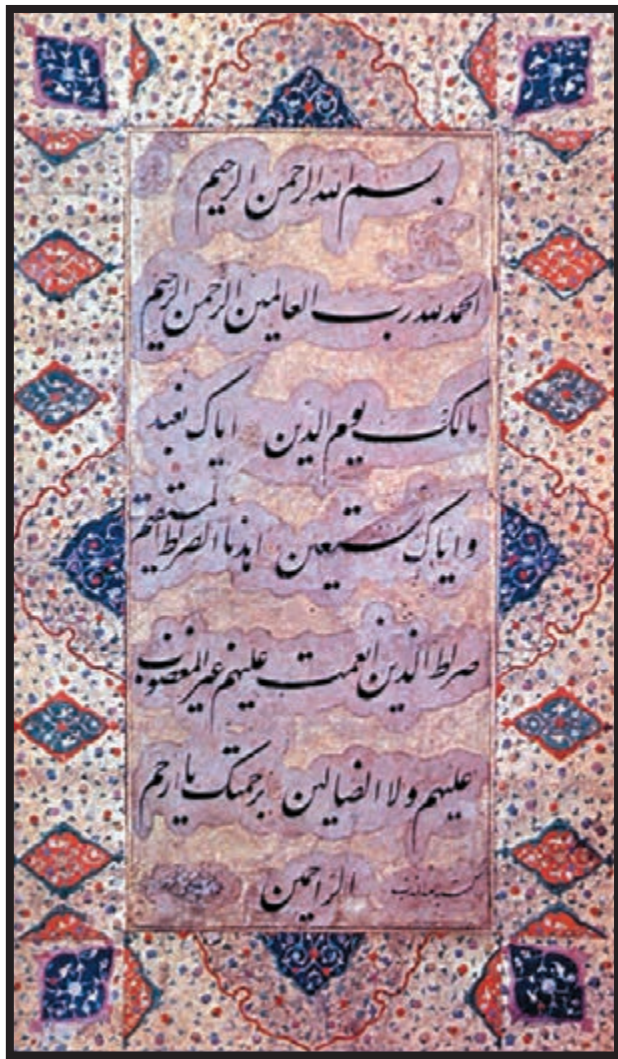 بسم الله الرحمن الرحیم
الحمد لله رب العالمین الرحمن الرحیم
مالک یوم الدین ایاک نعبد
وایاک نستعین اهدنا الصراط المستقیم
صراط الذین انعمت علیهم غیر المغضوب
علیهم ولا الضالین برحمتک یا ارحم
الراحمین